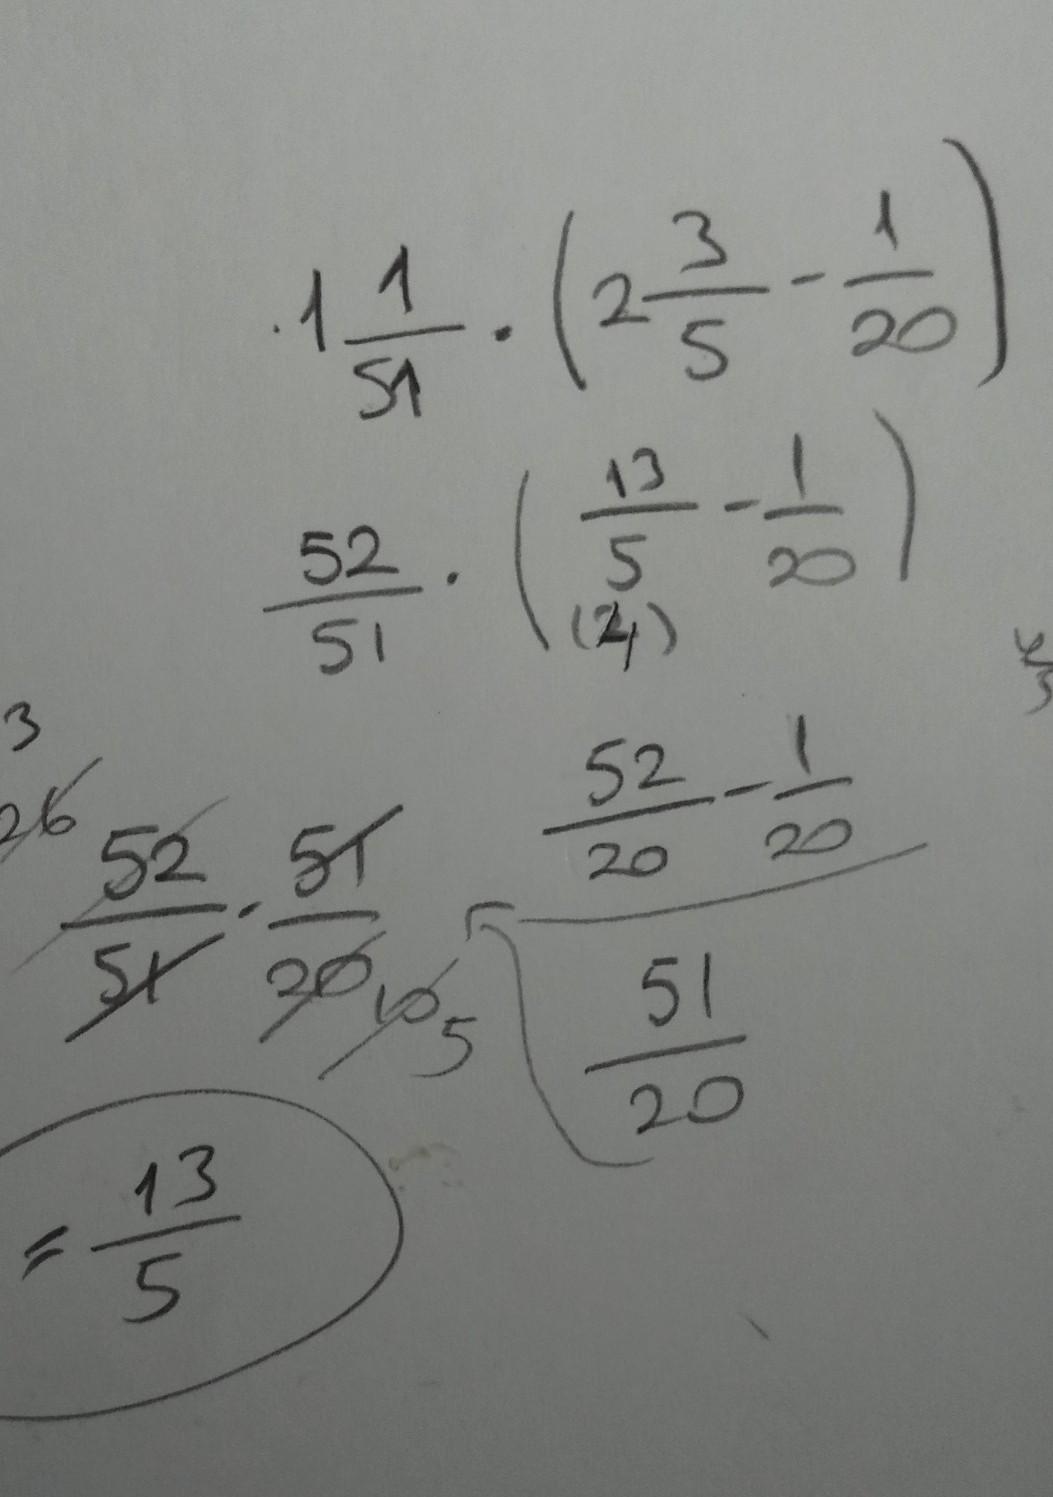 1 1/51 · (2 3/5 - 1/20)
52/51 · (13/5 - 1/20)
(4)
52/20 - 1/20
51/20
3
26
52/51 · 51/20
10
5
= 13/5